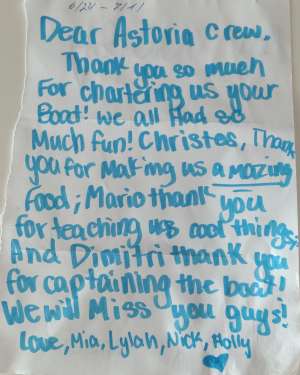 6/24 - 7/1/
Dear Astoria Crew,
Thank you so much
for chartering us your
Boat! We all Had so
Much fun! Christos, Thank
you for Making us amazing
food; Mario thank you
for teaching us cool things;
And Dimitri thank you
for captaining the boat!
We will Miss you guys!
Love, Mia, Lylah, Nick, Holly